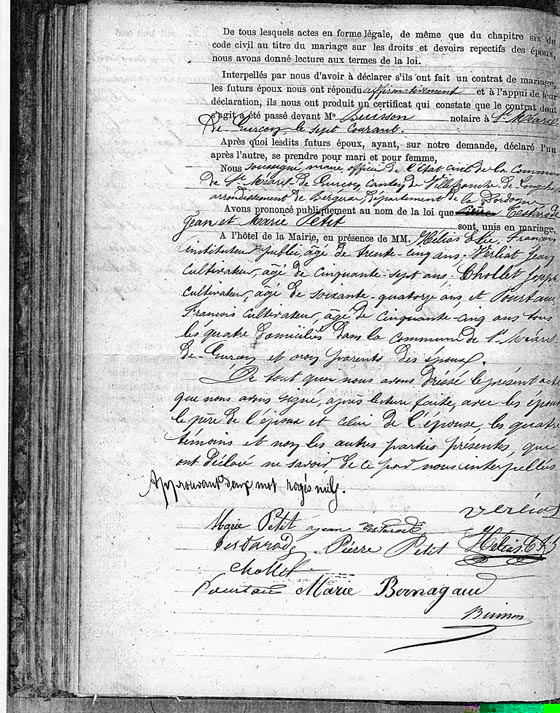 De tous lesquels actes en forme légale, de même que du chapitre six du
code civil au titre du mariage sur les droits et devoirs repectifs des époux,
nous avons donné lecture aux termes de la loi.
Interpellés par nous d'avoir à déclarer s'ils ont fait un contrat de mariage,
les futurs époux nous ont répondu affirmativement et à l'appui de leur
déclaration, ils nous ont produit un certificat qui constate que le contrat dont
s'agit a été passé devant Me Buisson notaire à St Méard
De Gurçon, le sept Courant.
Après quoi lesdits futurs époux, ayant, sur notre demande, déclaré l'un
après l'autre, se prendre pour mari et pour femme,
Nous soussigné maire officier de l'Etat civil de la Commune
de St Méard de Gurçon, Canton de Villefranche de Longchapt
arrondissement de Bergerac, département de la Dordogne
Avons prononcé publiquement au nom de la loi que Testarode
Jean et Marie Petit sont, unis en mariage.
A l'hôtel de la Mairie, en présence de MM. Hélias Elie, François
instituteur public, âgé de trente-cinq ans, Vérliat Jean
Cultivateur, âgé de Cinquante-sept ans, Chollet
Cultivateur, âgé de soixante-quatorze ans et Pourtau
François Cultivateur, âgé de Cinquante-Cinq ans tous
les quatre domiciliés dans la Commune de St Méard
de Gurçon et non parents des époux.
De tout quoi nous avons dressé le présent acte
que nous avons signé, après lecture faite, avec les époux
le père de l'époux et celui de l'épouse, les quatre
témoins et non les autres parties présentes, qui
ont déclaré ne savoir de ce par nous interpellés
Approuvant deux mot rayés nuls.
Marie Petit Jean Testarode
Testarode Pierre Petit Hélias
Chollet
Pourtau Marie Bernagaud
Buisson